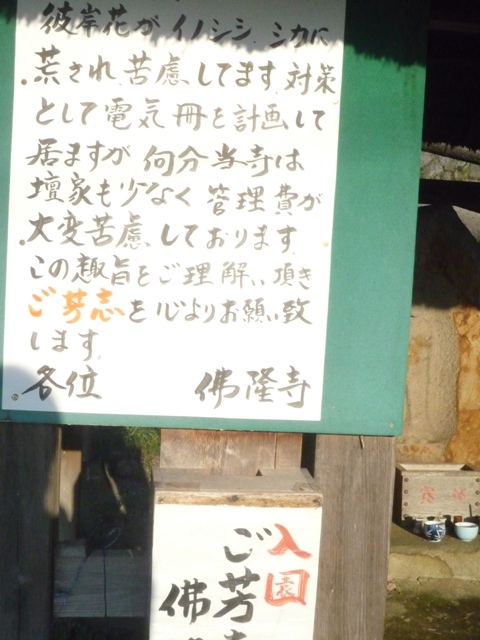 彼岸花がイノシシ、シカに
荒され苦慮してます。対策
として電気冊を計画して
居ますが何分当寺は
壇家も少なく管理費が
大変苦慮しております。
この趣旨をご理解い頂き
ご芳志を心よりお願い致
します。
各位 佛隆寺
入園
ご芳志
佛